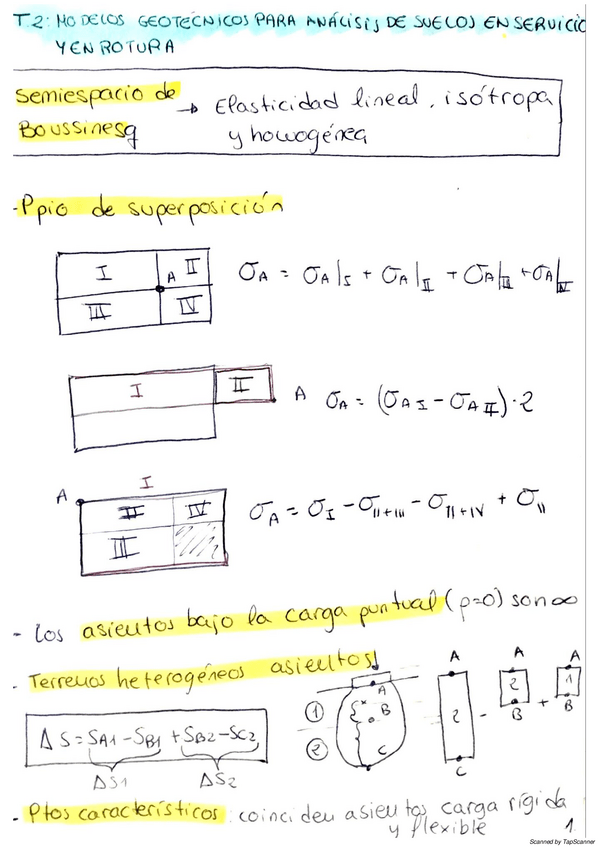 T2: MODELOS GEOTÉCNICOS PARA ANÁLISIS DE SUELOS EN SERVICIO
Y EN ROTURA
Semiespacio de
Boussinesq
→ Elasticidad lineal, isótropa
y homogénea
- Ppio de superposición
I A II
III IV
σA = σA|I + σA|II + σA|III + σA|IV
I II A
σA = (σA I - σA II) · 2
I
A
II IV
III
σA = σI - σII+III - σII+IV + σII
- Los asientos bajo la carga puntual (ρ=0) son ∞
- Terrenos heterogéneos asientos!
ΔS = SA1 - SB1 + SB2 - SC2
ΔS1 ΔS2
① ②
A
B
C
A
2
C
-
A
2
B
+
A
1
B
- Ptos característicos: coinciden asientos carga rígida
y flexible
1.
Scanned by TapScanner